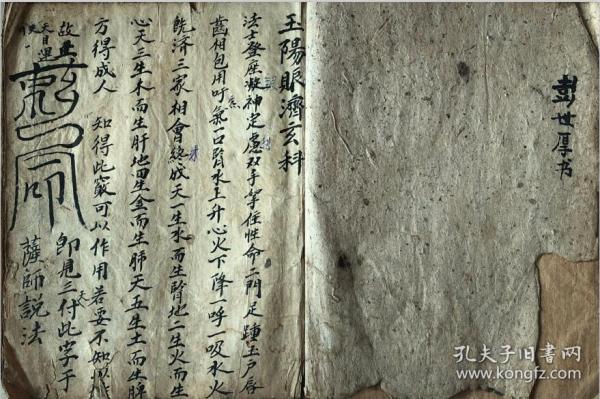 彭世厚书
玉陽賑濟玄科
法士登座凝神定慮双手挐住性命二門足踵玉户唇
齒相包用吁氣一口腎水上升心火下降一呼一吸水火
既济三家相會終成天一生水而生腎地二生火而生
心天三生木而生肝地四生金而生肺天五生土而生脾
方得成人 知得此竅可以作用若要不知
即見三付此字于
薩師說法
孔夫子旧书网
www.kongfz.com